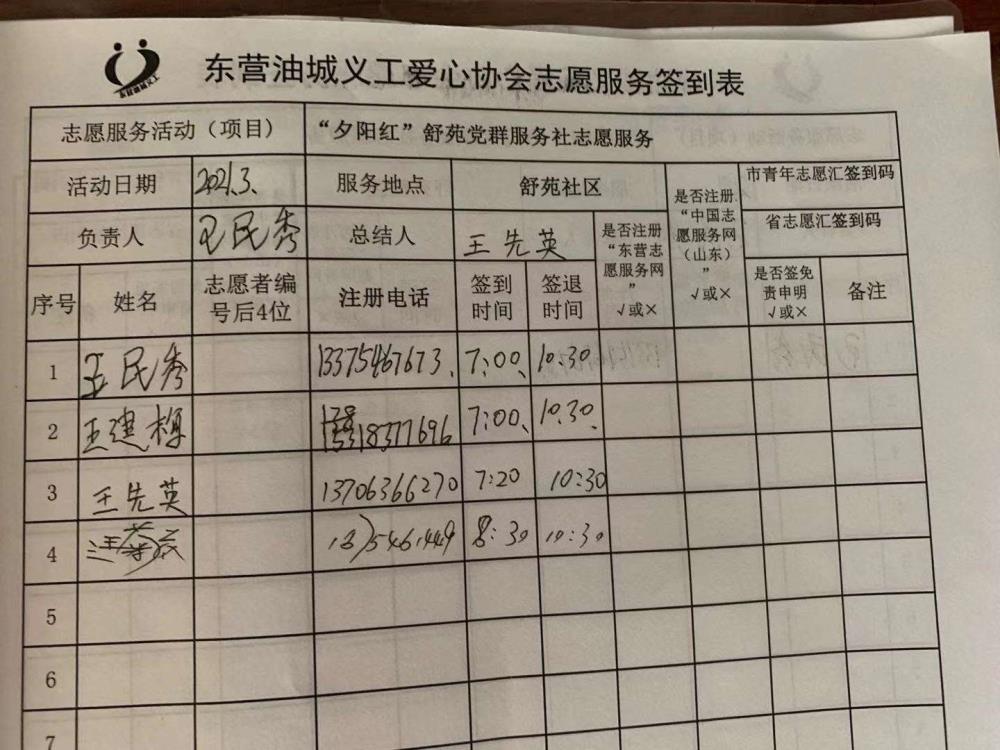 东营油城义工
东营油城义工爱心协会志愿服务签到表
志愿服务活动（项目） “夕阳红”舒苑党群服务社志愿服务
活动日期 2021.3. 服务地点 舒苑社区 是否注册“中国志愿服务网（山东）”√或× 市青年志愿汇签到码
负责人 王民秀 总结人 王先英 是否注册“东营志愿服务网”√或× 省志愿汇签到码
序号 姓名 志愿者编号后4位 注册电话 签到时间 签退时间 是否签免责申明√或× 备注
1 王民秀 13375467673. 7:00、 10:30
2 王建梅 18377696 7:00、 10.30、
3 王先英 13706366270 7:20 10:30
4 8:30 10:30
5
6
7